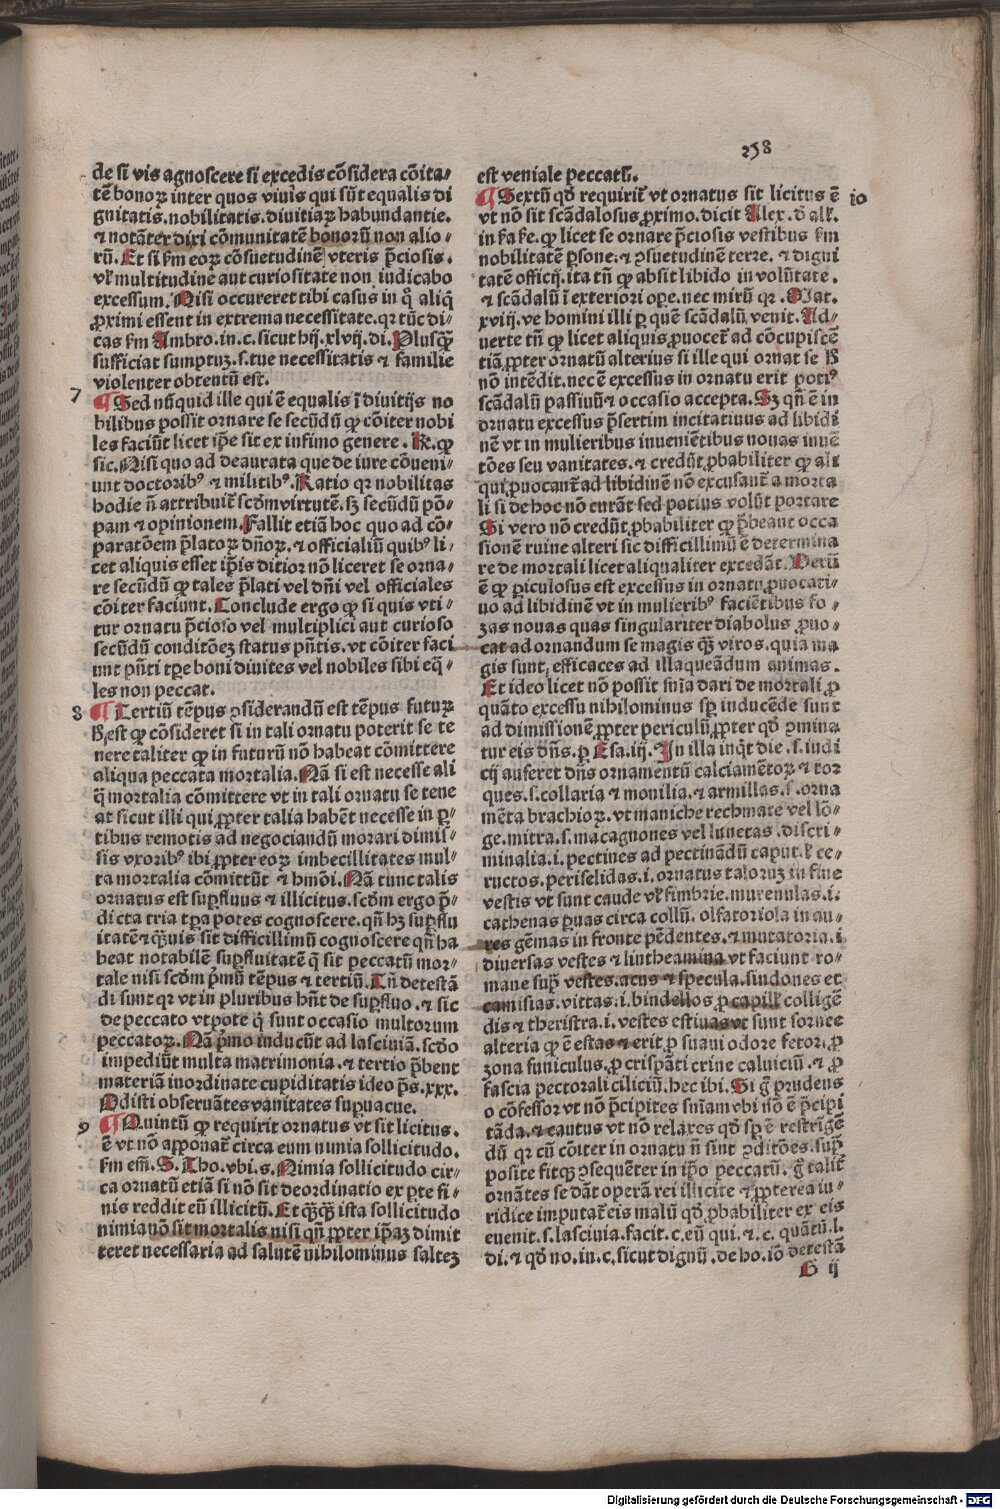 258
de si vis agnoscere si excedis cõsidera cõita-
tẽ bonoꝝ inter quos viuis qui sũt equalis di
gnitatis. nobilitatis. diuitiaꝝ habundantie.
⁊ notãter dixi cõmunitatẽ bonorũ non alio-
rũ. Et si ẜm eoꝝ cõsuetudinẽ vteris p̃ciosis.
vl' multitudine aut curiositate non iudicabo
excessum. Nisi occureret tibi casus in q̊ aliq̃
ꝓximi essent in extrema necessitate. qꝛ tũc di-
cas ẜm Ambro. in. c. sicut hij. xlvij. di. Plusq̃
sufficiat sumptuꝫ. s. tue necessitatis ⁊ familie
violenter obtentũ est.
7
¶ Sed nũquid ille qui ẽ equalis ĩ diuitijs no
bilibus possit ornare se secũdũ ꝙ cõiter nobi
les faciũt licet ip̃e sit ex infimo genere. R. ꝙ
sic. Nisi quo ad deaurata que de iure cõueni-
unt doctoribꝰ ⁊ militibꝰ. Ratio qꝛ nobilitas
hodie ñ attribuit᷑ scd̃m virtutẽ. sꝫ secũdũ põ-
pam ⁊ opinionem. Fallit etiã hoc quo ad cõ-
paratõem p̃latoꝝ dñoꝝ. ⁊ officialiũ quibꝰ li-
cet aliquis esset ip̃is ditior nõ liceret se orna-
re secũdũ ꝙ tales p̃lati vel dñi vel officiales
cõiter faciunt. Conclude ergo ꝙ si quis vti-
tur ornatu p̃cioso vel multiplici aut curioso
secũdũ conditõeꝫ status p̃ntis. vt cõiter faci
unt p̃nti tp̃e boni diuites vel nobiles sibi eq̃-
les non peccat.
8
¶ Tertiũ tẽpus ꝯsiderandũ est tẽpus futuꝝ
h̃. est ꝙ cõsideret si in tali ornatu poterit se te
nere taliter ꝙ in futurũ nõ habeat cõmittere
aliqua peccata mortalia. Nã si est necesse ali
q̃ mortalia cõmittere vt in tali ornatu se tene
at sicut illi qui ꝓpter talia habẽt necesse in ꝑ-
tibus remotis ad negociandũ morari dimis-
sis vxoribꝰ ibi ꝓpter eoꝝ imbecillitates mul-
ta mortalia cõmittũt ⁊ hmõi. Nã tunc talis
ornatus est suꝑfluus ⁊ illicitus. scd̃m ergo p̃-
dicta tria tꝑa potes cognoscere. qñ hꝫ suꝑflu
itatẽ ⁊ q̃uis sit difficillimũ cognoscere qñ ha
beat notabilẽ suꝑfluitatẽ q̃ sit peccatũ mor-
tale nisi scd̃m p̃mũ tẽpus ⁊ tertiũ. Tñ detestã
di sunt qꝛ vt in pluribus hñt de suꝑfluo. ⁊ sic
de peccato vtpote q̃ sunt occasio multorum
peccatoꝝ. Nã p̃mo inducũt ad lasciuiã. scd̃o
impediũt multa matrimonia. ⁊ tertio p̃bent
materiã inordinate cupiditatis ideo p̃s. xxx.
Odisti obseruãtes vanitates suꝑuacue.
9
¶ Quintũ ꝙ requirit᷑ ornatus vt sit licitus.
ẽ vt nõ apponat᷑ circa eum nimia sollicitudo.
ẜm em̃. S. Tho. vbi. s. Nimia sollicitudo cir-
ca ornatũ etiã si nõ sit deordinatio ex ꝑte fi-
nis reddit eũ illicitũ. Et q̃q̃ ista sollicitudo
nimia nõ sit mortalis nisi qñ ꝓpter ip̃aꝫ dimit
teret necessaria ad salutẽ nihilominus salteꝫ
est veniale peccatũ.
10
¶ Sextũ qd̃ requirit᷑ vt ornatus sit licitus ẽ
vt nõ sit scãdalosus ꝓximo. dicit Alex. d̃ al'.
in ẜa ẜe. ꝙ licet se ornare p̃ciosis vestibus ẜm
nobilitatẽ ꝑsone. ⁊ ꝯsuetudinẽ terre. ⁊ digni
tatẽ officij. ita tñ ꝙ absit libido in volũtate.
⁊ scãdalũ ĩ exteriori oꝑe. nec mirũ qꝛ. Mat.
xviij. ve homini illi ꝑ quẽ scãdalũ venit. Ad-
uerte tñ ꝙ licet aliquis ꝓuocet᷑ ad cõcupiscẽ
tiã ꝓpter ornatũ alterius si ille qui ornat se h̃
nõ intẽdit. nec ẽ excessus in ornatu erit potiꝰ
scãdalũ passiuũ ⁊ occasio accepta. Sꝫ qñ ẽ in
ornatu excessus p̃sertim incitatiuus ad libidi
nẽ vt in mulieribus inueniẽtibus nouas inuẽ
tões seu vanitates. ⁊ credũt ꝓbabiliter ꝙ ali
qui ꝓuocant᷑ ad libidinẽ nõ excusant᷑ a morta
li si de hoc nõ curãt sed potius volũt portare
Si vero nõ credũt ꝓbabiliter ꝙ p̃beant occa
sionẽ ruine alteri sic difficillimũ ẽ determina
re de mortali licet aliqualiter excedãt. Verũ
ẽ ꝙ ꝑiculosus est excessus in ornatu ꝓuocati-
uo ad libidinẽ vt in mulieribꝰ faciẽtibus fo-
zas nouas quas singulariter diabolus ꝓuo-
cat ad ornandum se magis q̃ viros. quia ma
gis sunt efficaces ad illaqueãdum animas.
Et ideo licet nõ possit sñia dari de mortali ꝓ
quãto excessu nihilominus sp̃ inducẽde sunt
ad dimissionẽ ꝓpter periculũ ꝓpter qd̃ ꝯmina
tur eis dñs. ꝑ Esa. iij. In illa inq̃t die. s. iudi
cij auferet dñs ornamentũ calciamẽtoꝝ ⁊ tor
ques. s. collaria ⁊ monilia. ⁊ armillas. s. orna
mẽta brachioꝝ. vt maniche rechmate vel lõ-
ge. mitra. s. macagnones vel lunetas. discri-
minalia. i. pectines ad pectinãdũ caput. l' ce-
ructos. periselidas. i. ornatus taloruꝫ in fine
vestis vt sunt caude vl' fimbrie. murenulas. i.
cathenas ꝑuas circa collũ. olfatoriola in au-
res gẽmas in fronte pẽdentes. ⁊ mutatoria. i.
diuersas vestes ⁊ lintheamina vt faciunt ro-
mane suꝑ vestes. acus ⁊ specula. sindones et
camisias. vittas. i. bindellos ꝓ capill' colligẽ
dis ⁊ theristra. i. vestes estiuas vt sunt sornee
alteria ꝙ ẽ estas ⁊ erit ꝓ suaui odore fetor. ꝓ
zona funiculus. ꝓ crispãti crine caluiciũ. ⁊ ꝓ
fascia pectorali ciliciũ. hec ibi. Si g̃ prudens
o cõfessor vt nõ p̃cipites sñiam vbi nõ ẽ p̃cipi
tãda. ⁊ cautus vt nõ relaxes qd̃ sp̃ ẽ restrigẽ
dũ qꝛ cũ cõiter in ornatu ñ sint ꝯditões. suꝑ
posite fitqꝫ ꝯsequẽter in ip̃o peccatũ. g̃ talit᷑
ornãtes se dãt operã rei illicite ⁊ ꝓpterea iu-
ridice imputat᷑ eis malũ qd̃ ꝓbabiliter ex eis
euenit. s. lasciuia. facit. c. eũ qui. ⁊. c. quãtũ. l.
di. ⁊ qd̃ no. in. c. sicut dignũ. de ho. iõ detestã
G ij
Digitalisierung gefördert durch die Deutsche Forschungsgemeinschaft - DFG